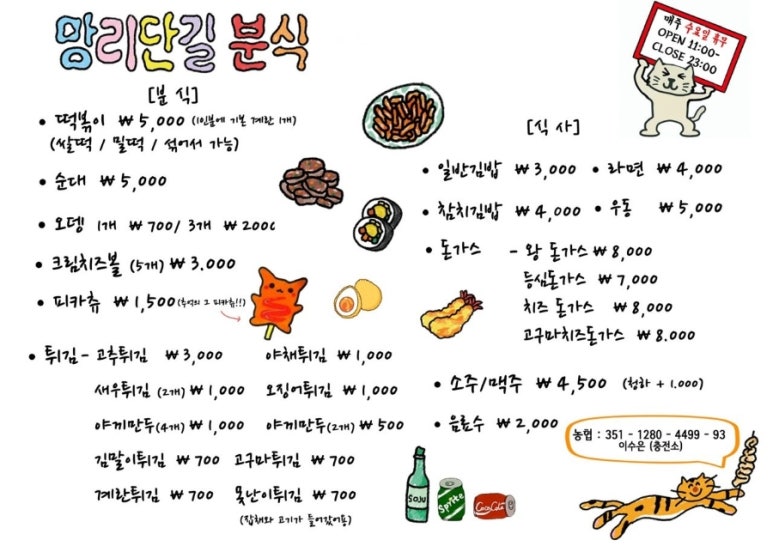 망리단길 분식
매주 수요일 휴무
OPEN 11:00-
CLOSE 23:00
[분 식]
• 떡볶이 ₩ 5,000 (1인분에 기본 계란 1개)
(쌀떡 / 밀떡 / 섞어서 가능)
• 순대 ₩ 5,000
• 오뎅 1개 ₩ 700/ 3개 ₩ 2000
• 크림치즈볼 (5개) ₩ 3.000
• 피카츄 ₩ 1,500 (추억의 그 피카츄!!)
• 튀김 - 고추튀김 ₩ 3,000 야채튀김 ₩ 1,000
새우튀김 (2개) ₩ 1,000 오징어튀김 ₩ 1,000
야끼만두(4개) ₩ 1,000 야끼만두(2개) ₩ 500
김말이튀김 ₩ 700 고구마튀김 ₩ 700
계란튀김 ₩ 700 못난이튀김 ₩ 700
(잡채와 고기가 들어갔어용)
[식 사]
• 일반김밥 ₩ 3,000 • 라면 ₩ 4,000
• 참치김밥 ₩ 4,000 • 우동 ₩ 5,000
• 돈가스 - 왕 돈가스 ₩ 8,000
등심돈가스 ₩ 7,000
치즈 돈가스 ₩ 8,000
고구마치즈돈가스 ₩ 8.000
• 소주/맥주 ₩ 4,500 (청하 + 1.000)
• 음료수 ₩ 2,000
농협 : 351 - 1280 - 4499 - 93
이수은 (충전소)
SOJU
Sprite
CocaCola